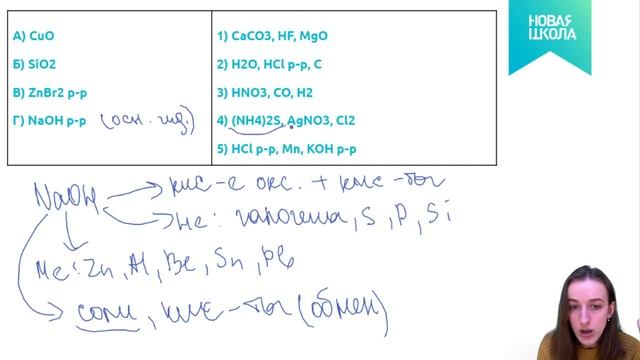 НОВАЯ
ШКОЛА
А) CuO
Б) SiO2
В) ZnBr2 р-р
Г) NaOH р-р (осн. гид.)
1) CaCO3, HF, MgO
2) H2O, HCl р-р, C
3) HNO3, CO, H2
4) (NH4)2S, AgNO3, Cl2
5) HCl р-р, Mn, KOH р-р
NaOH
кис-е окс. + кис-ты
Не: галогены, S, P, Si
Ме: Zn, Al, Be, Sn, Pb
соли, кис-ты (обмен)